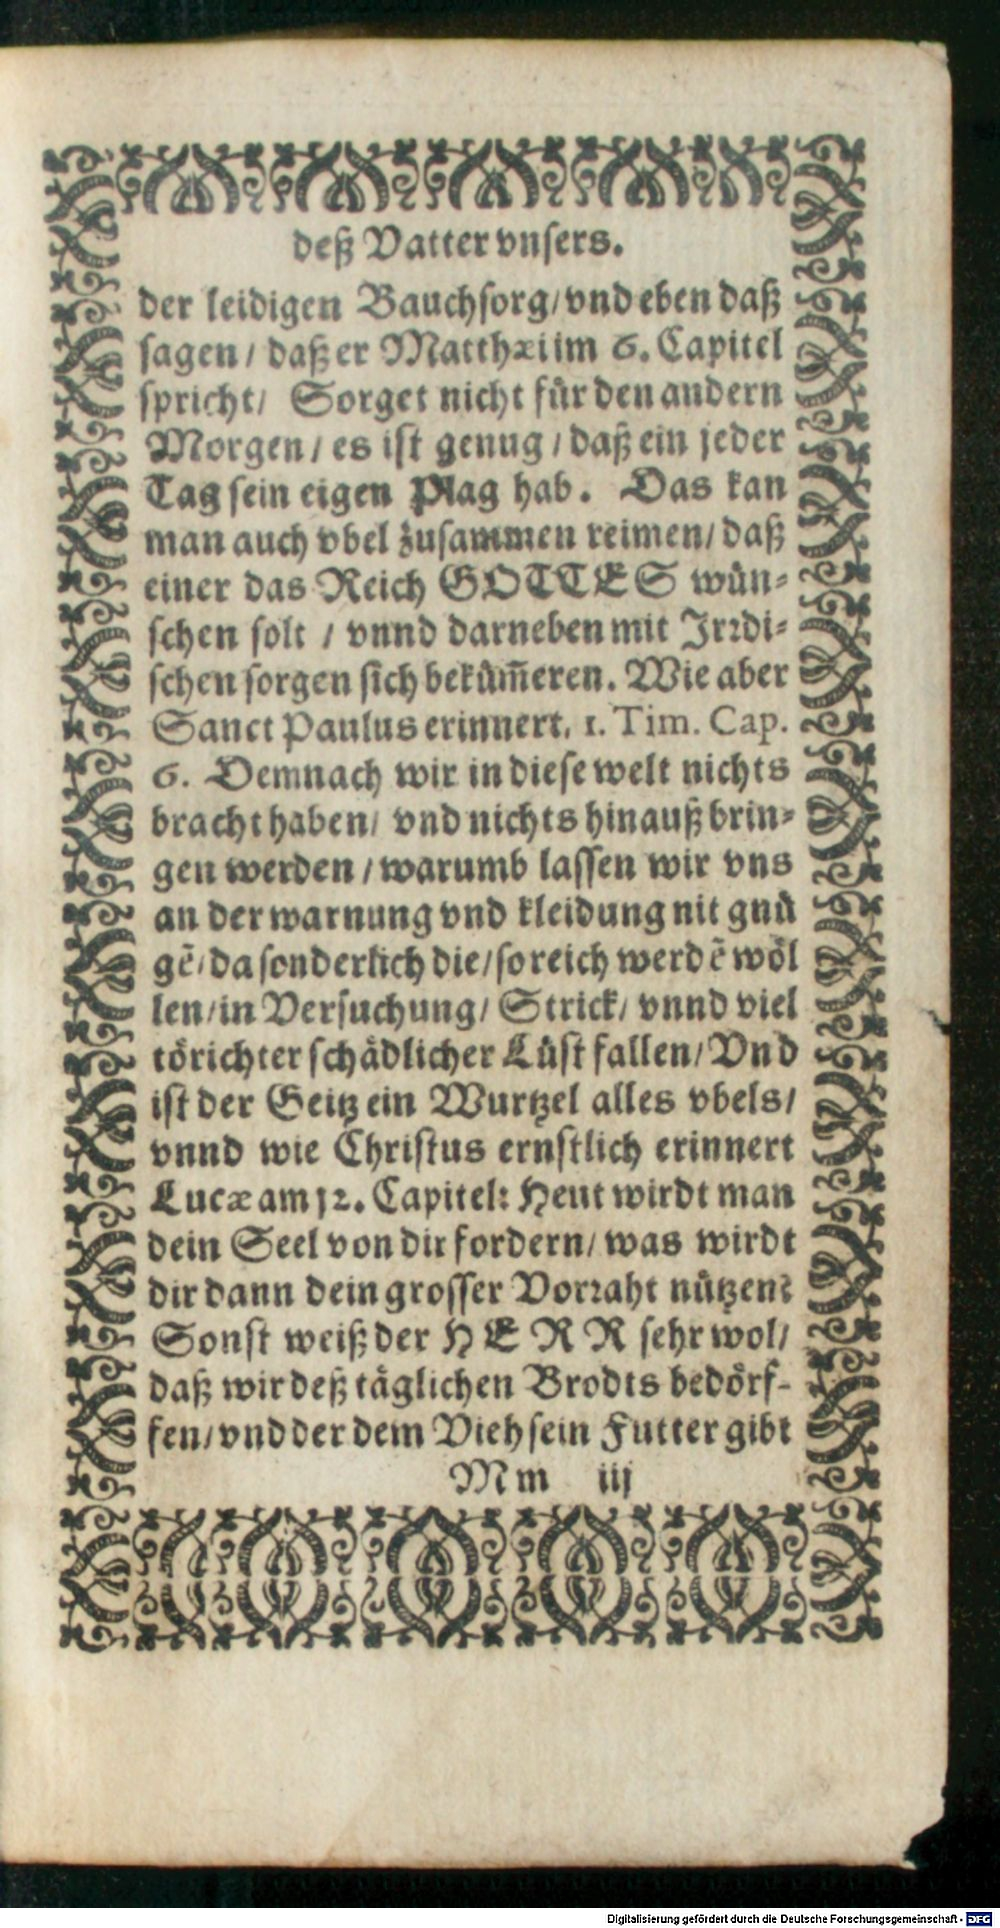 deß Vatter vnsers.
der leidigen Bauchsorg/ vnd eben daß
sagen/ daß er Matthæi im 6. Capitel
spricht/ Sorget nicht für den andern
Morgen/ es ist genug/ daß ein jeder
Tag sein eigen Plag hab. Das kan
man auch vbel zusammen reimen/ daß
einer das Reich GOTTES wün-
schen solt / vnnd darneben mit Irrdi-
schen sorgen sich bekům̃eren. Wie aber
Sanct Paulus erinnert. 1. Tim. Cap.
6. Demnach wir in diese welt nichts
bracht haben/ vnd nichts hinauß brin-
gen werden/ warumb lassen wir vns
an der warnung vnd kleidung nit gnů
gẽ/ da sonderlich die/ so reich werdẽ wöl
len/ in Versuchung/ Strick/ vnnd viel
törichter schädlicher Lüst fallen/ Vnd
ist der Geitz ein Wurtzel alles vbels/
vnnd wie Christus ernstlich erinnert
Lucæ am 12. Capitel: Heut wirdt man
dein Seel von dir fordern/ was wirdt
dir dann dein grosser Vorraht nützen?
Sonst weiß der HERR sehr wol/
daß wir deß täglichen Brodts bedörf-
fen/ vnd der dem Vieh sein Futter gibt
Mm iij
Digitalisierung gefördert durch die Deutsche Forschungsgemeinschaft - DFG